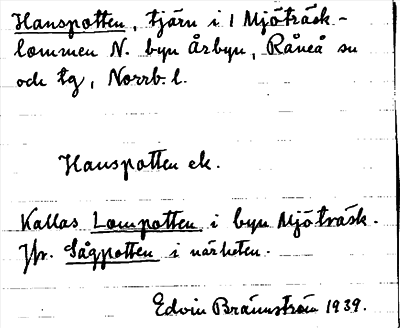 Hanspotten, tjärn i l Mjöträsk-
lommen N. byn Årbyn, Råneå sn
och tg, Norrb. l.
Hanspotten ek.
Kallas Lompotten i byn Mjöträsk.
Jfr. Sågpotten i närheten.
Edvin Brännström 1939.